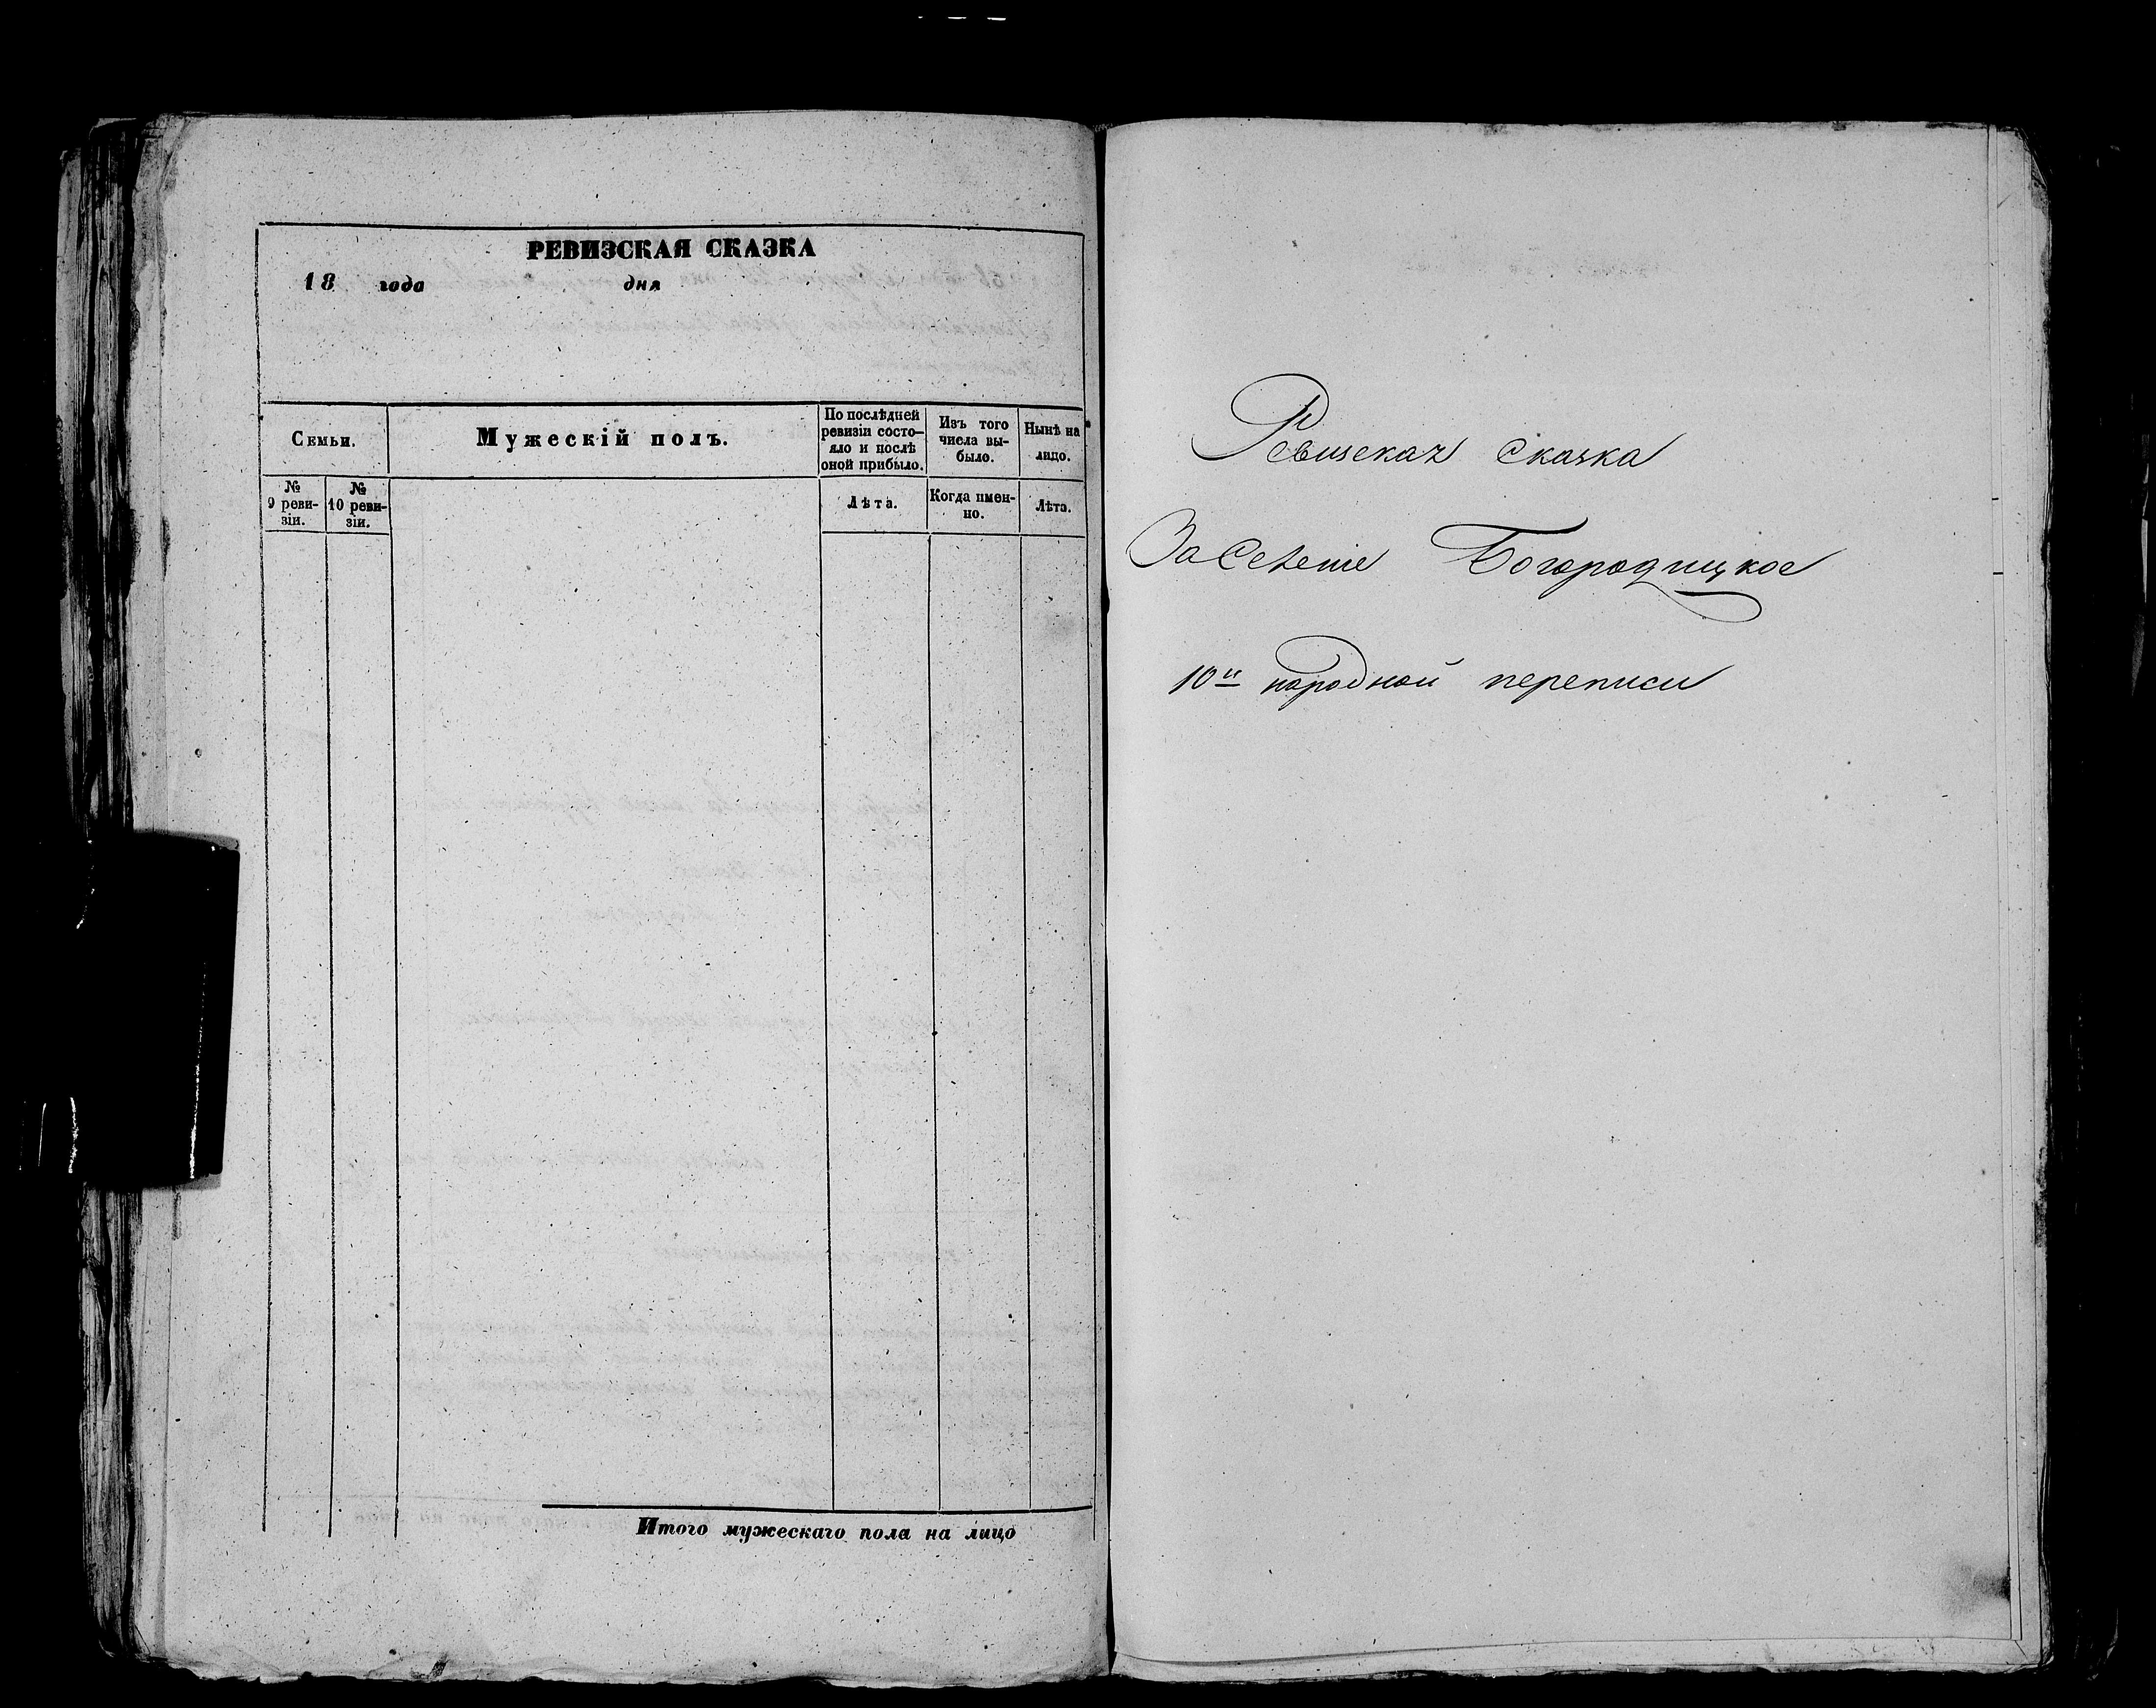 РЕВИЗСКАЯ СКАЗКА
18 года дня
Семьи.
Мужескій полъ.
По послѣдней
ревизіи состо-
яло и послѣ
оной прибыло.
Изъ того
числа вы-
было.
Нынѣ на
лицо.
№
9 реви-
зіи.
№
10 реви-
зіи.
Лѣта.
Когда имен-
но.
Лѣта.
Итого мужескаго пола на лицо
Ревизская Сказка
За Селеніе Богородицкое
10й народной переписи